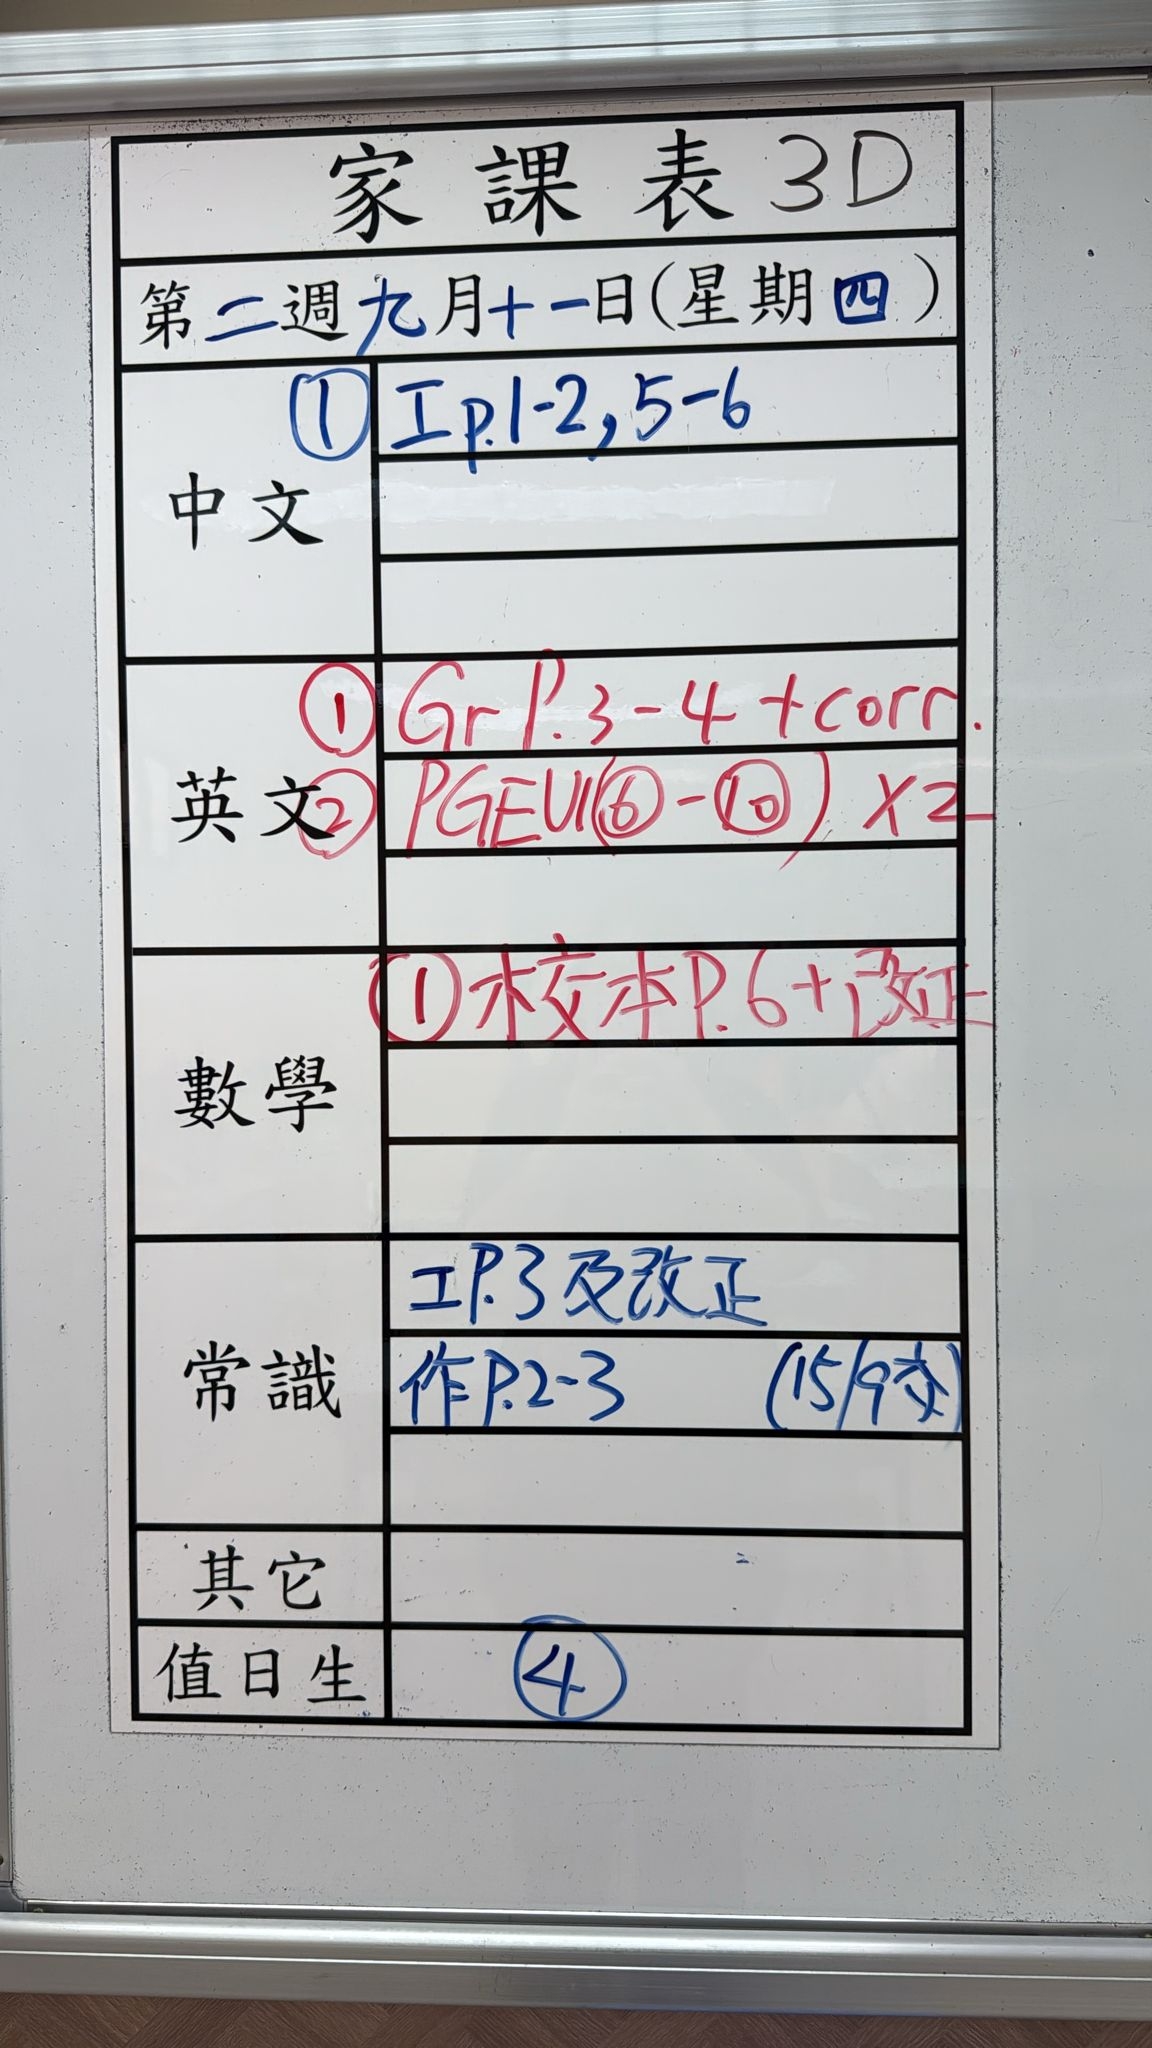 家課表 3D
第二週九月十一日(星期四)
中文
① 工 p.1-2, 5-6
英文
① Gr P.3-4 + corr.
② PGEU1(⑥-⑩) ×2
數學
① 校本 P.6 + 改正
常識
工 P.3 及改正
作 P.2-3 (15/9交)
其它
值日生 ④